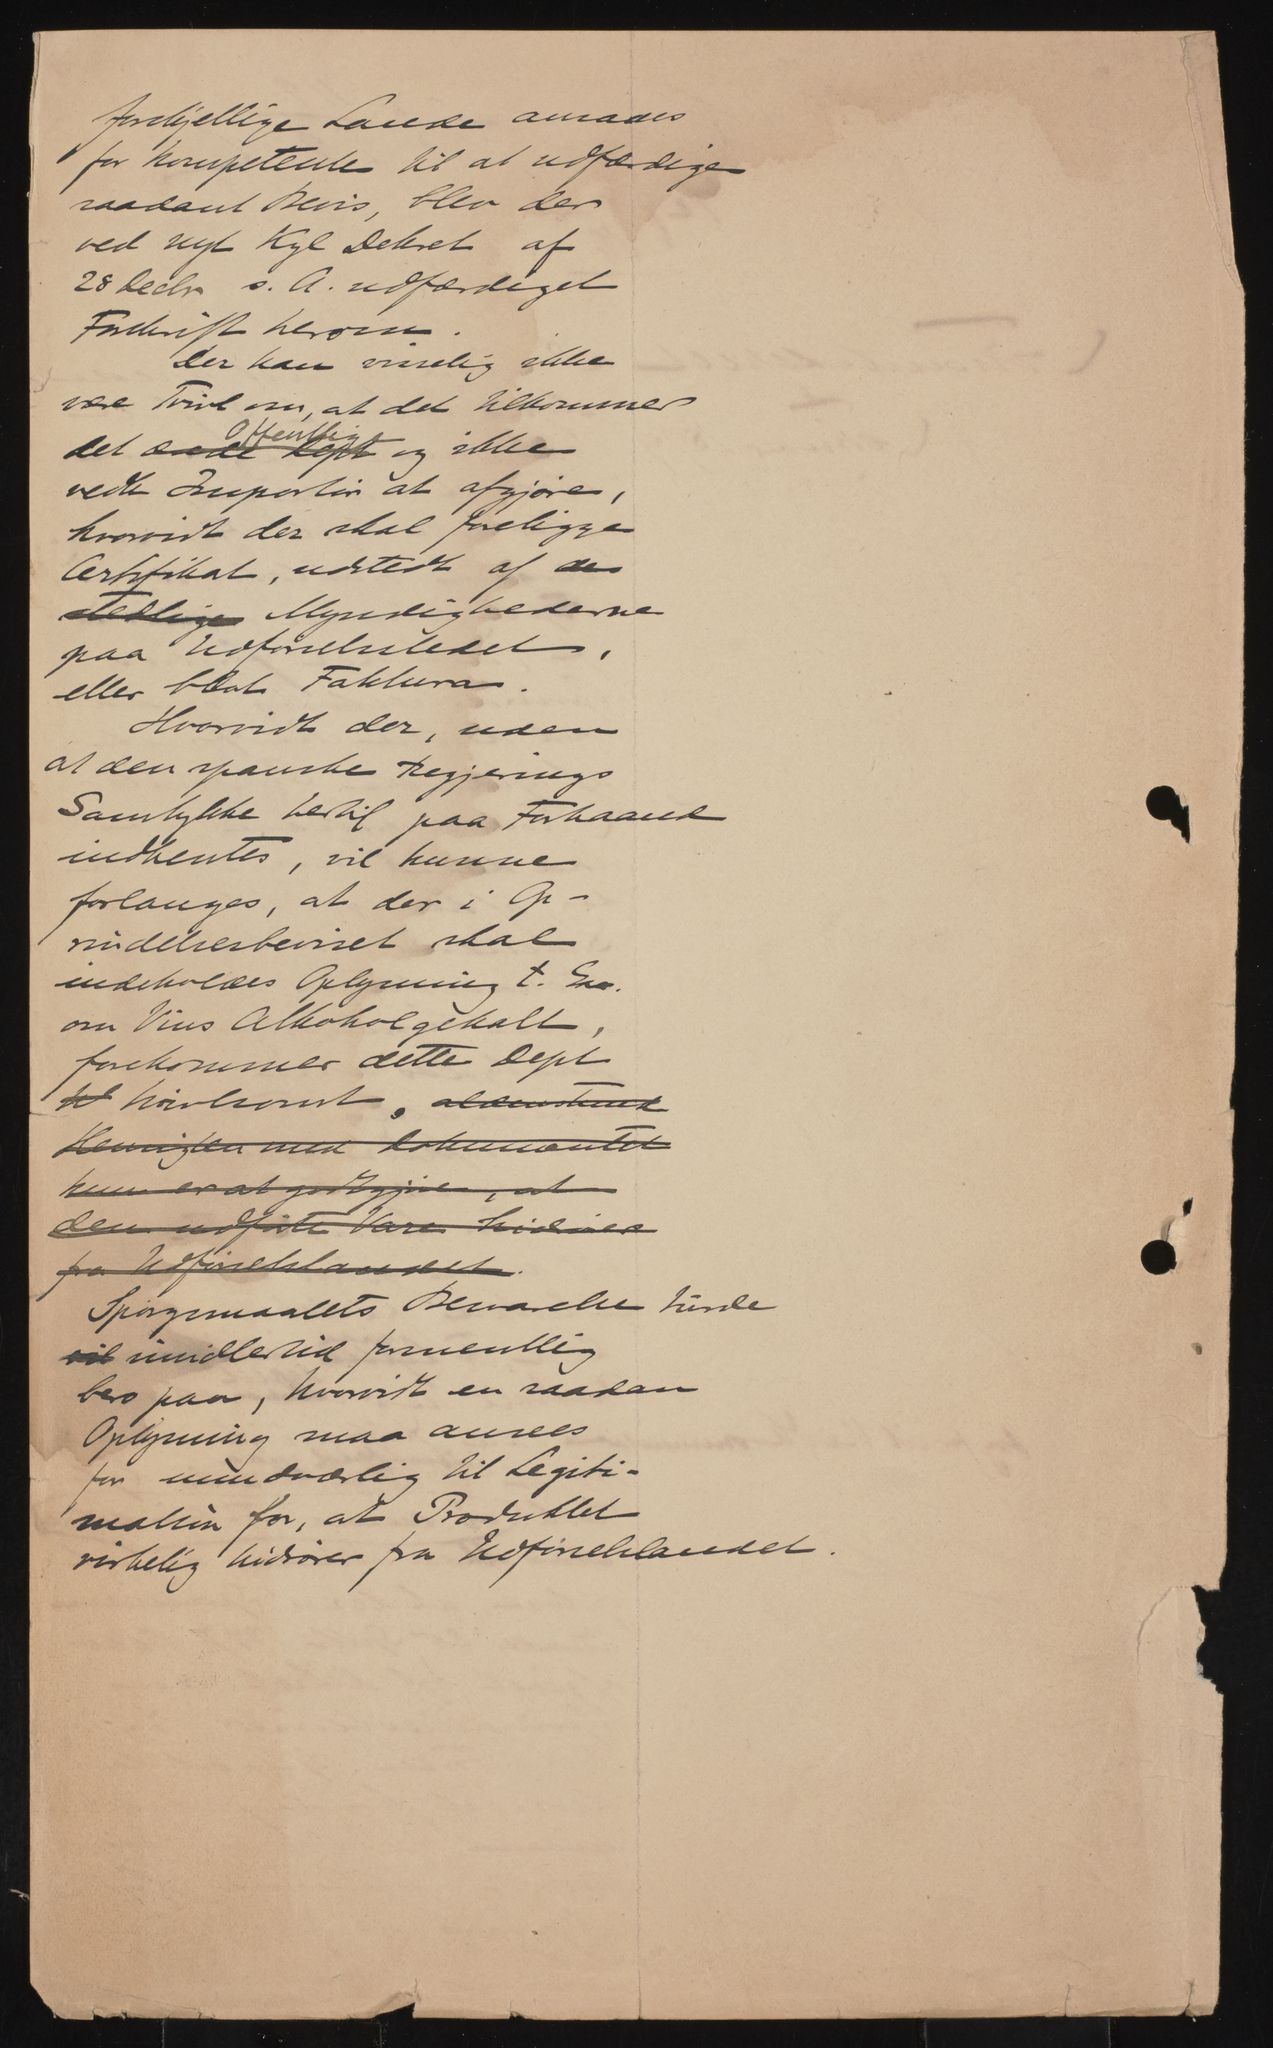 forskjellige Lande ansaaes
for kompetente til at udfærdige
saadant Bevis, blev der
ved nyt Kgl Dekret af
28 Decbr s. A. udfærdiget
Forskrift herom.
Der kan visselig ikke
være Tvivl om, at det tilkommer
Offentlige
det ærede Dept og ikke
vedk Importør at afgjøre,
hvorvidt der skal foreligge
Certifikat, udstedt af de
stedlige Myndighederne
paa Udførselsstedet,
eller blot Faktura.
Hvorvidt der, uden
at den spanske Regjerings
Samtykke hertil paa Forhaand
indhentes, vil kunne
forlanges, at der i Op-
rindelsesbeviset skal
indeholdes Oplysning t. Ex.
om Vins Alkoholgehalt,
forekommer dette Dept
tvivlsomt.
Hensigten med Dokumentet
kun er at godtgjøre, at
den udførte Vare hidrører
fra Udførselslandet.
Spørgsmaalets Besvarelse turde
vil imidlertid formentlig
bero paa, hvorvidt en saadan
Oplysning maa ansees
for uundværlig til Legiti-
mation for, at Produktet
virkelig hidrører fra Udførselslandet.